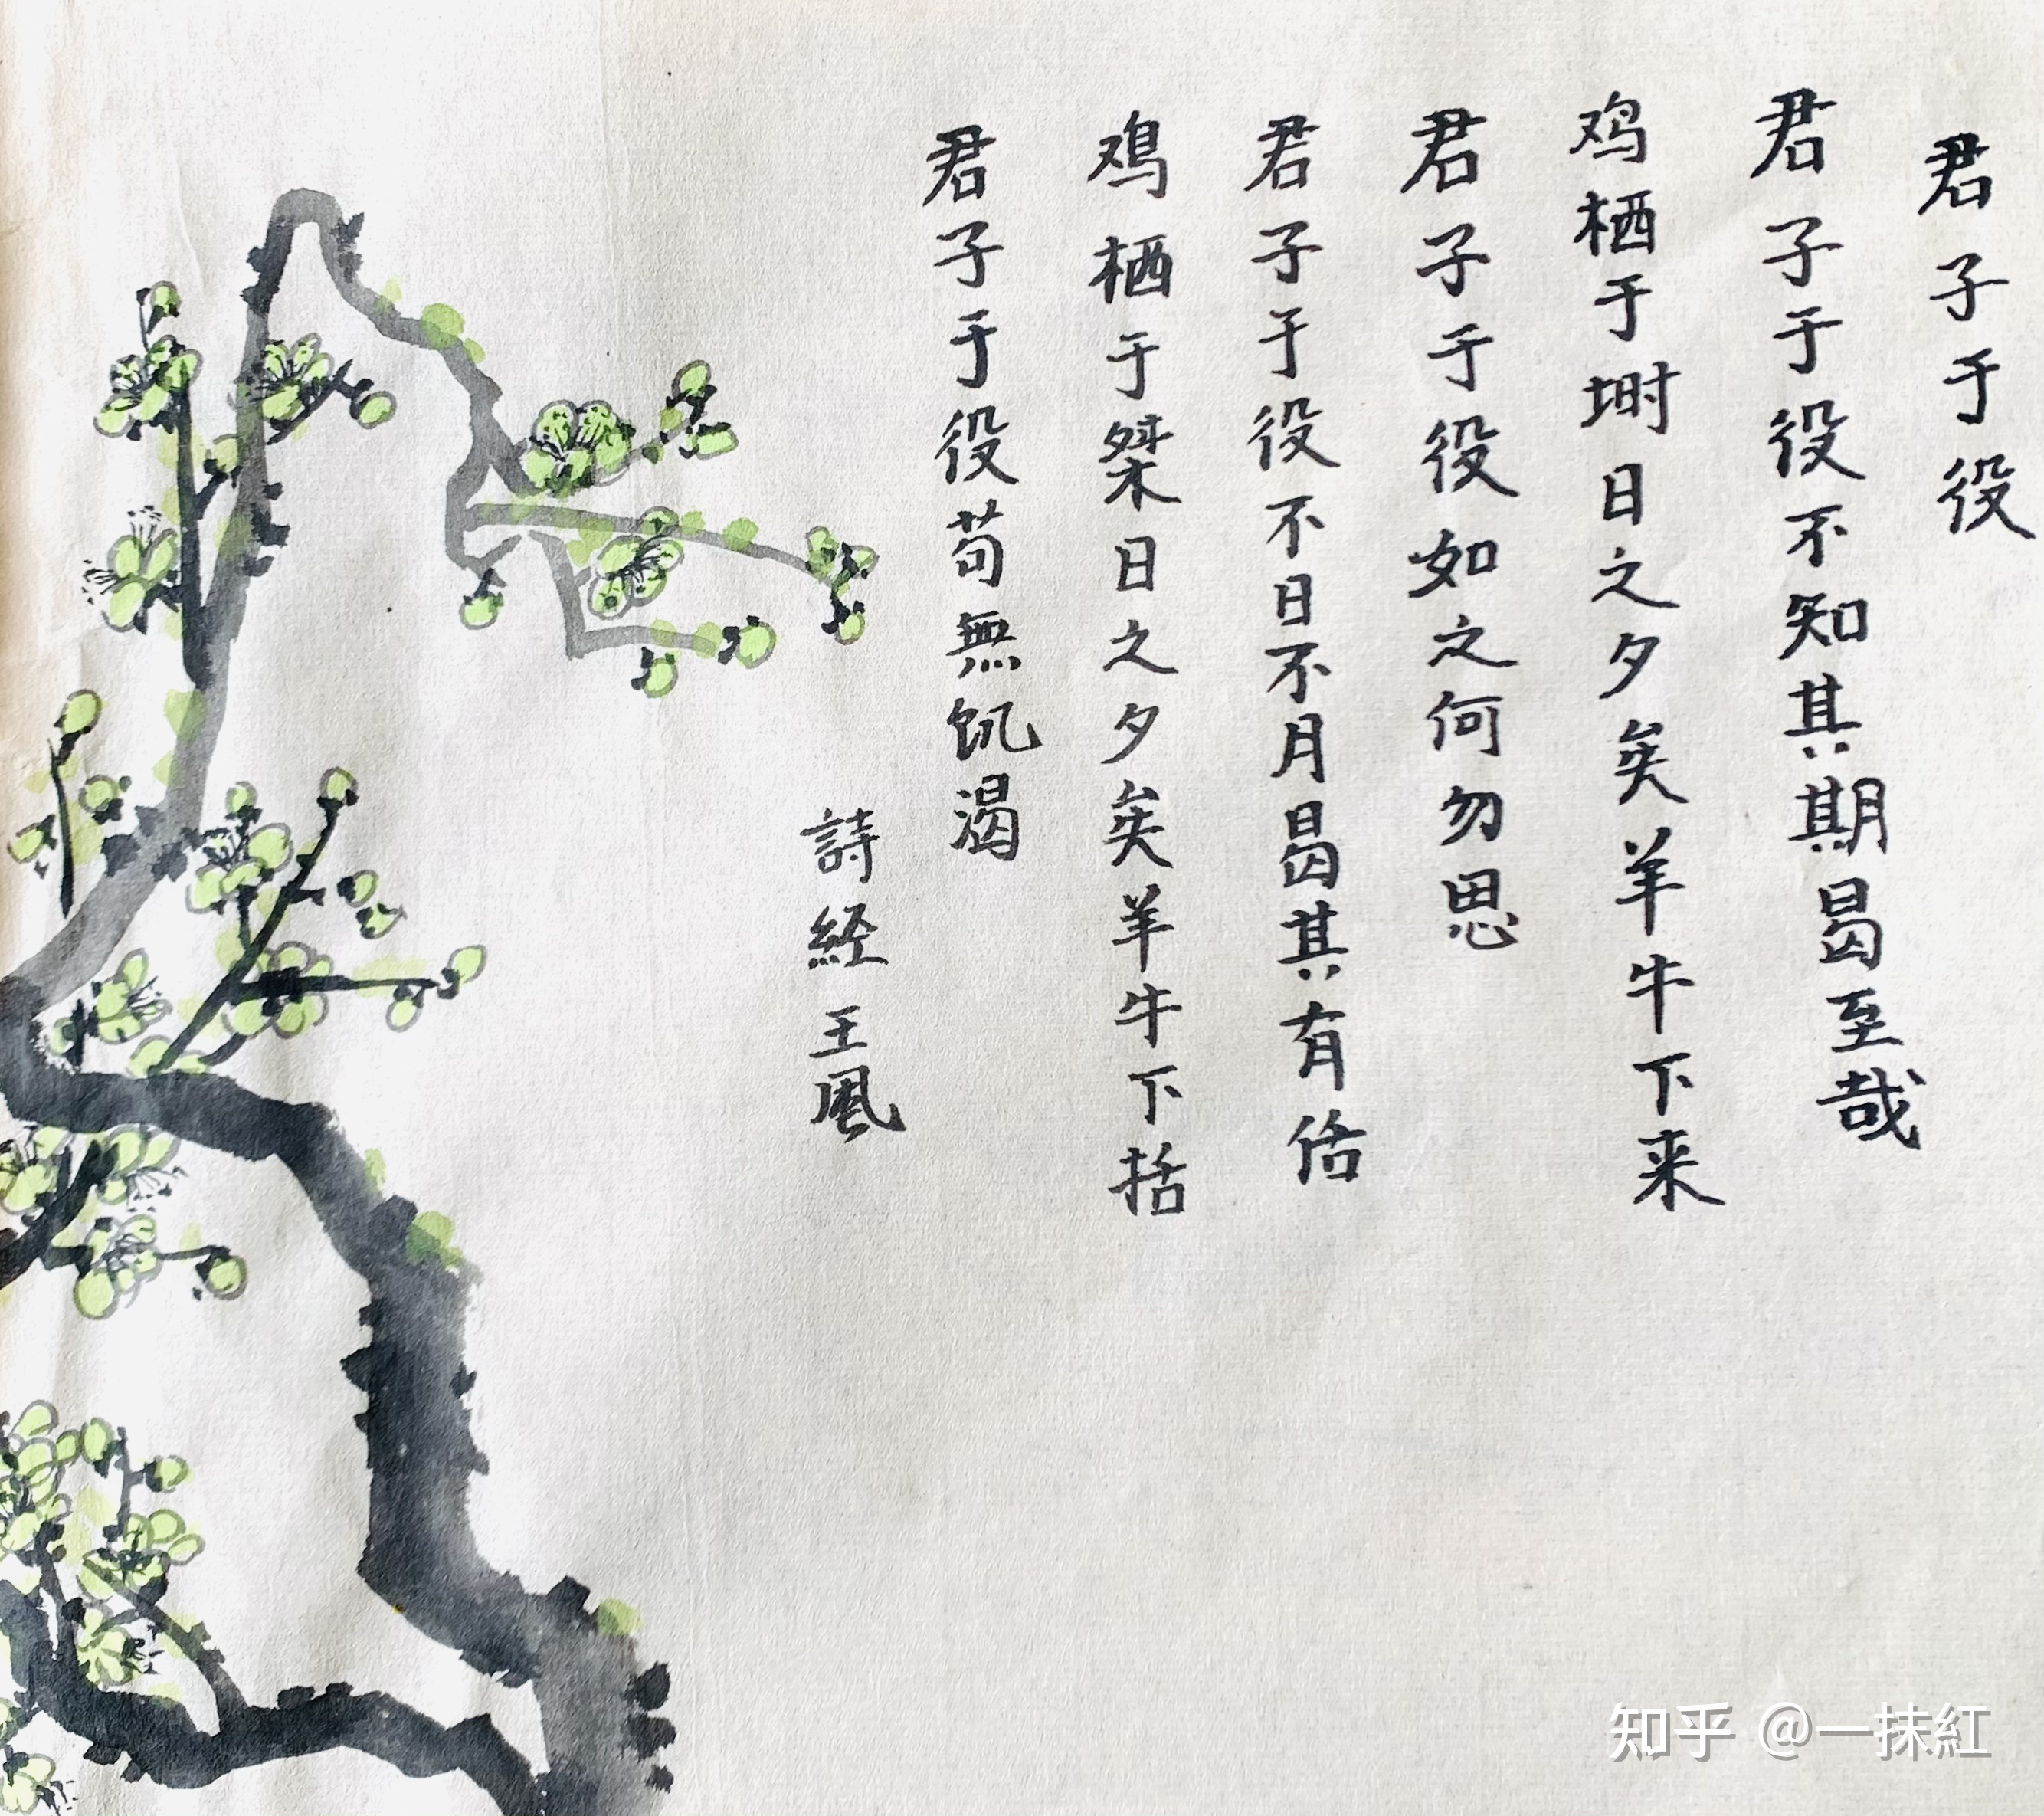 君子于役
君子于役不知其期曷至哉
鸡栖于埘日之夕矣羊牛下来
君子于役如之何勿思
君子于役不日不月曷其有佸
鳮栖于桀日之夕矣羊牛下括
君子于役苟無饥渴
詩経王風
知乎 @一抹紅